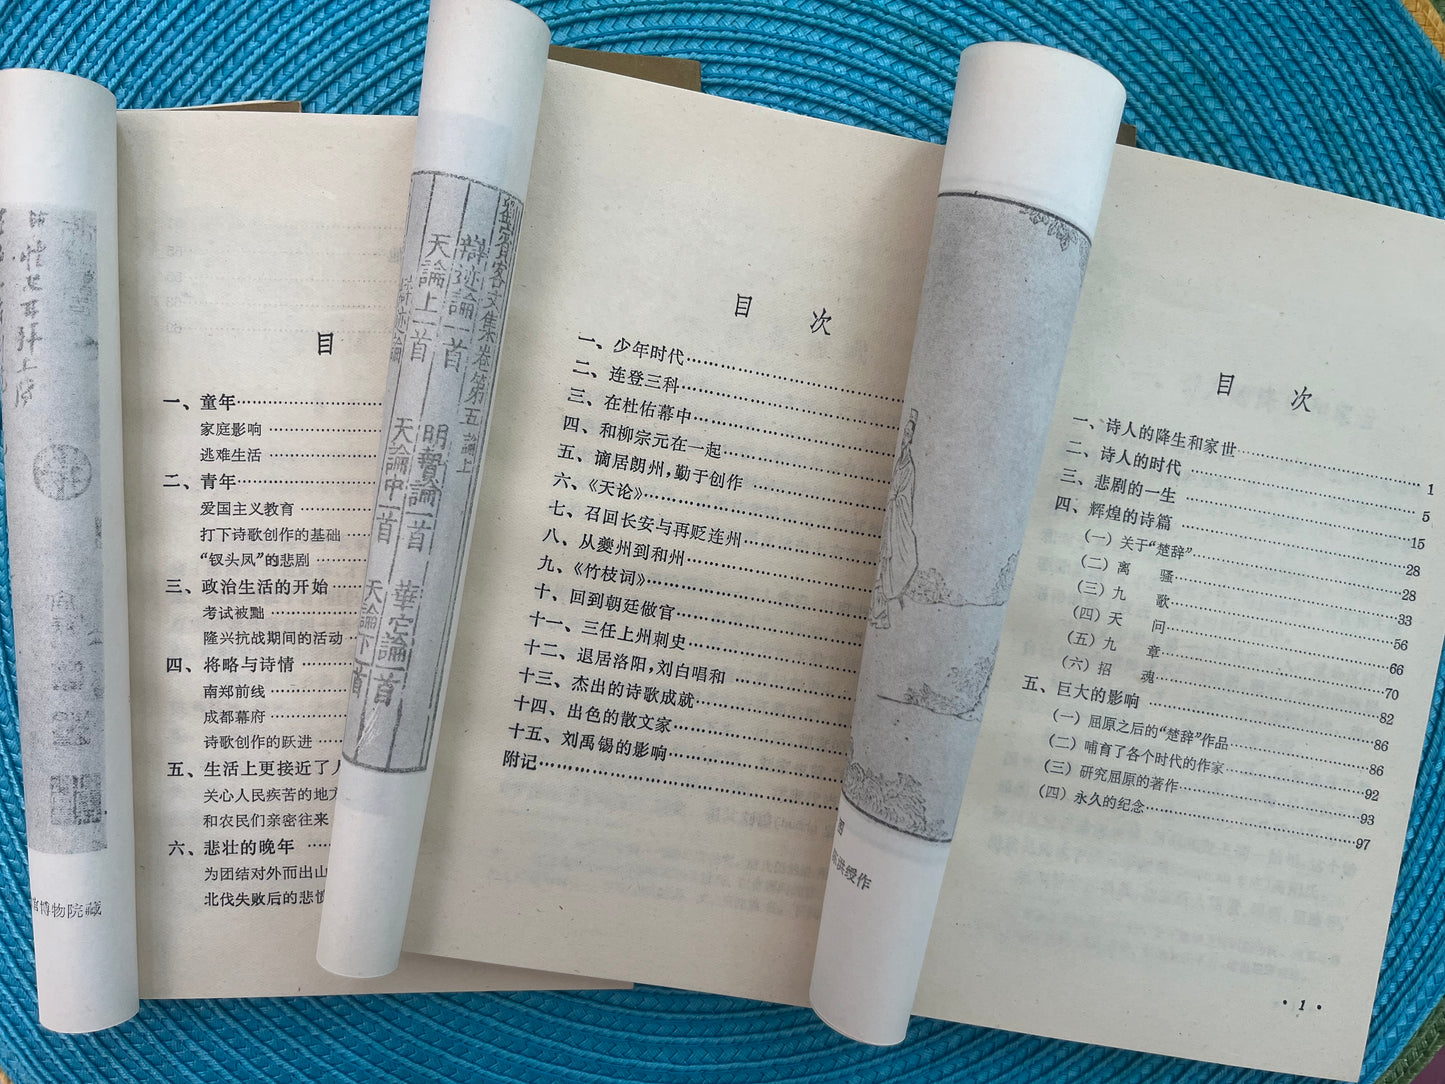 博物院藏
目
一、童年
家庭影响
逃难生活
二、青年
爱国主义教育
打下诗歌创作的基础
“钗头凤”的悲剧
三、政治生活的开始
考试被黜
隆兴抗战期间的活动
四、将略与诗情
南郑前线
成都幕府
诗歌创作的跃进
五、生活上更接近了人
关心人民疾苦的地方
和农民们亲密往来
六、悲壮的晚年
为团结对外而出山
北伐失败后的悲愤
賓客文集卷第五 論上
辯迹論一首
明贄論一首
華佗論一首
天論上一首
天論中一首
天論下一首
辯迹論
目 次
一、少年时代
二、连登三科
三、在杜佑幕中
四、和柳宗元在一起
五、谪居朗州，勤于创作
六、《天论》
七、召回长安与再贬连州
八、从夔州到和州
九、《竹枝词》
十、回到朝廷做官
十一、三任上州刺史
十二、退居洛阳，刘白唱和
十三、杰出的诗歌成就
十四、出色的散文家
十五、刘禹锡的影响
附记
图
洪绶作
目 次
一、诗人的降生和家世 1
二、诗人的时代 5
三、悲剧的一生 15
四、辉煌的诗篇 28
（一）关于“楚辞” 28
（二）离 骚 33
（三）九 歌 56
（四）天 问 66
（五）九 章 70
（六）招 魂 82
五、巨大的影响 86
（一）屈原之后的“楚辞”作品 86
（二）哺育了各个时代的作家 92
（三）研究屈原的著作 93
（四）永久的纪念 97
• 1 •